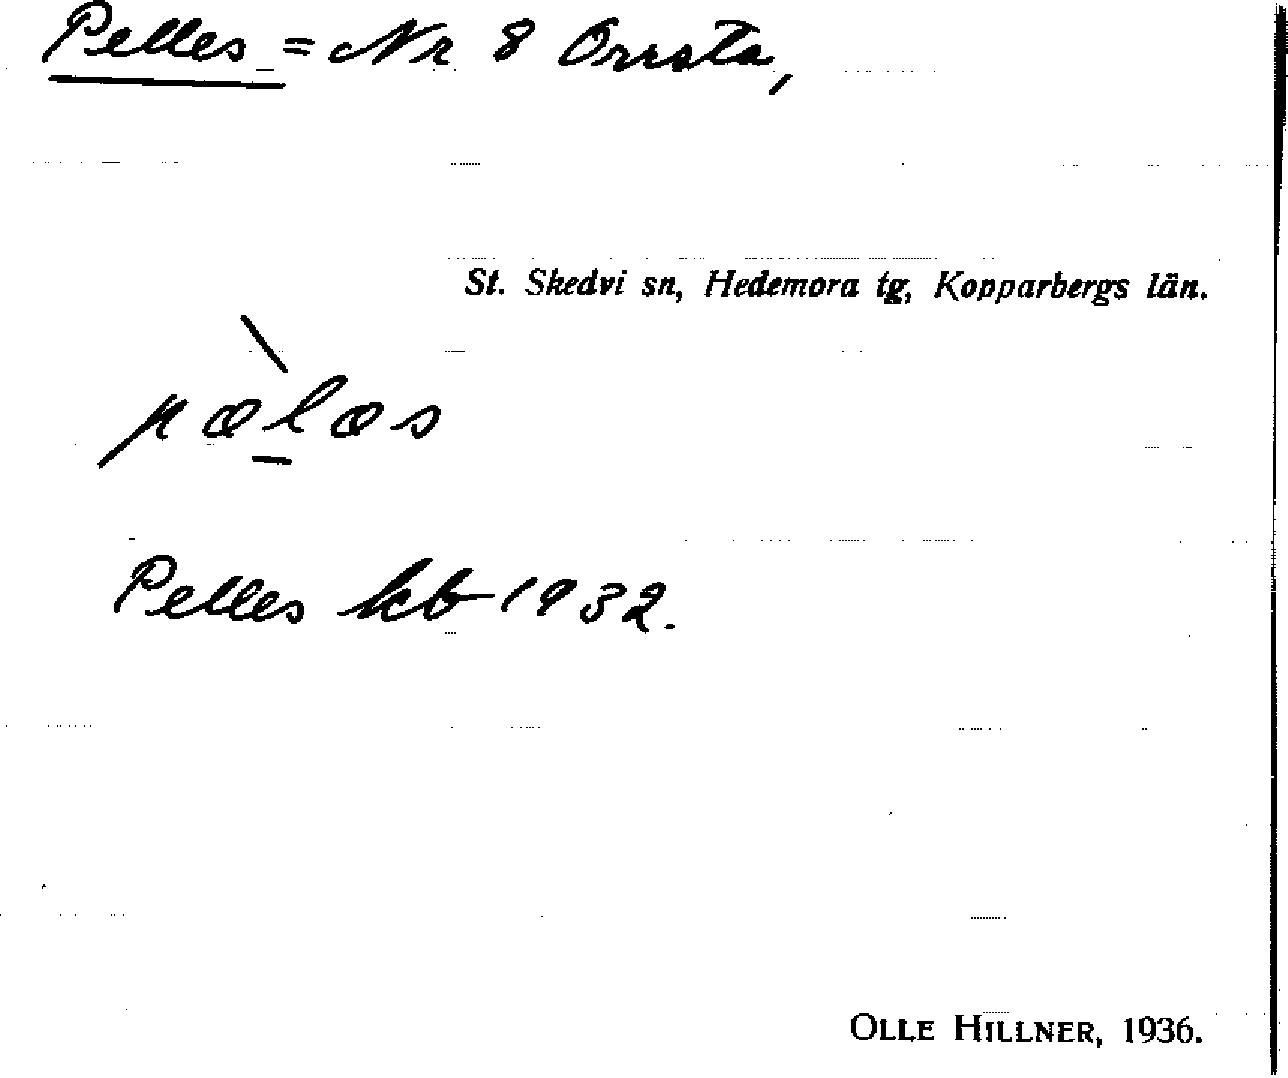 Pelles = Nr 8 Orrsta,
St. Skedvi sn, Hedemora tg, Kopparbergs län.
pæ̀læs
Pelles kb 1932.
OLLE HILLNER, 1936.